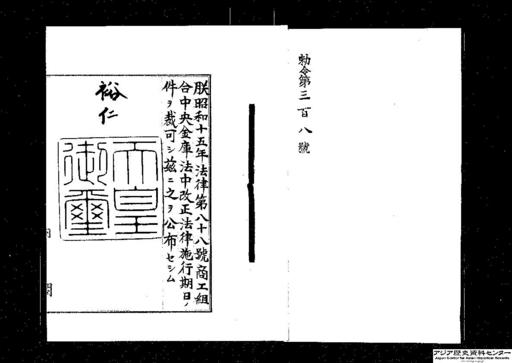 勅令第三百八號
朕昭和十五年法律第八十八號商工組
合中央金庫法中改正法律施行期日ノ
件ヲ裁可シ茲ニ之ヲ公布セシム
裕仁
天皇
御璽
内閣
アジア歴史資料センター
Japan Center for Asian Historical Records